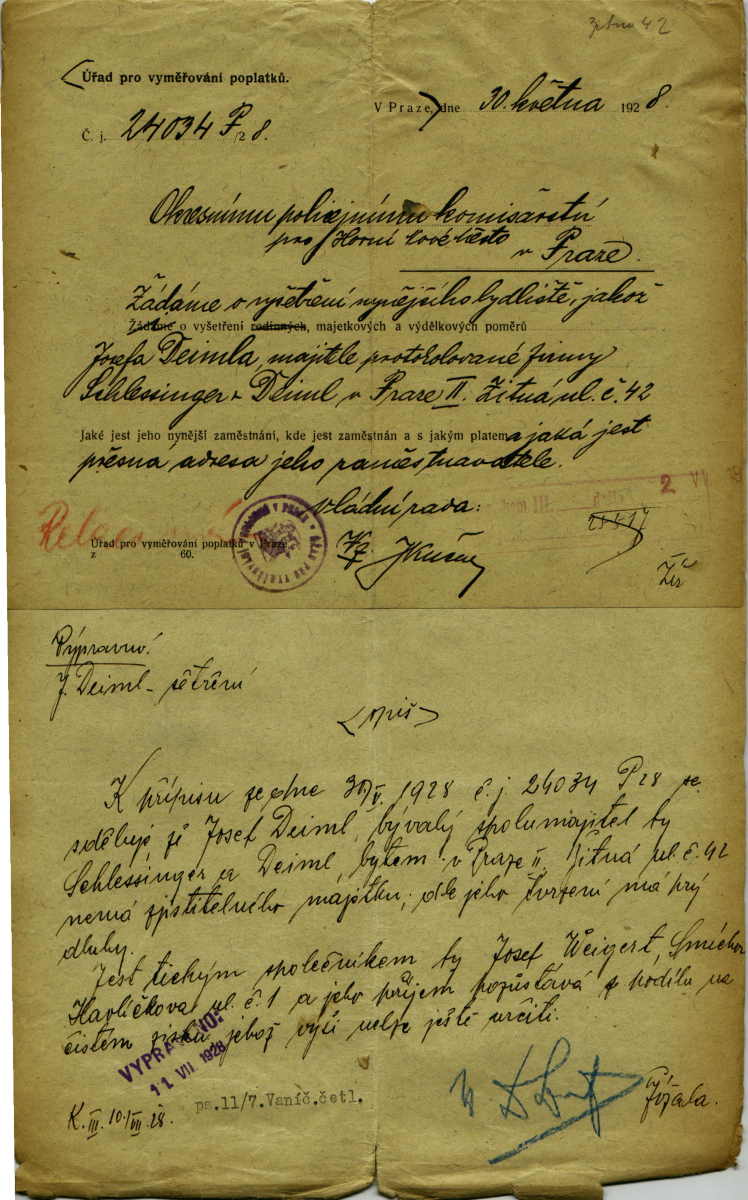 42
Úřad pro vyměřování poplatků.
V Praze, dne 30. května 1928.
Č. j. 24034 P/28.
Okresnímu policejnímu komisařství
pro Horní Nové Město
v Praze.
Žádáme o vyšetření nynějšího bydliště, jakož
Žádáme o vyšetření rodinných, majetkových a výdělkových poměrů
Josefa Deimla, majitele protokolované firmy
Schlessinger & Deiml v Praze II. Žitná ul. č. 42
Jaké jest jeho nynější zaměstnání, kde jest zaměstnán a s jakým platem a jaká jest
přesná adresa jeho zaměstnavatele.
vládní rada:
2 VI
Úřad pro vyměřování poplatků v Praze
z 60.
Výpravně.
J. Deiml - šetření
opis
K přípisu ze dne 30/V. 1928 č.j. 24034 P 28 se
sděluje že Josef Deiml, bývalý spolumajitel fy
Schlessinger a Deiml, bytem v Praze II, Žitná ul. č. 42
nemá zjistitelného majetku, dle jeho tvrzení má prý
dluhy.
Jest tichým společníkem fy Josef Weigert, Smíchov
Havlíčkova ul. č. 1 a jeho příjem pozůstává z podílu na
čistém zisku, jehož výši nelze ještě určiti.
VYPRAVENO:
11 VII 1928
ps.11/7.Vaníč.četl.
K. III. 10./VII. 28.